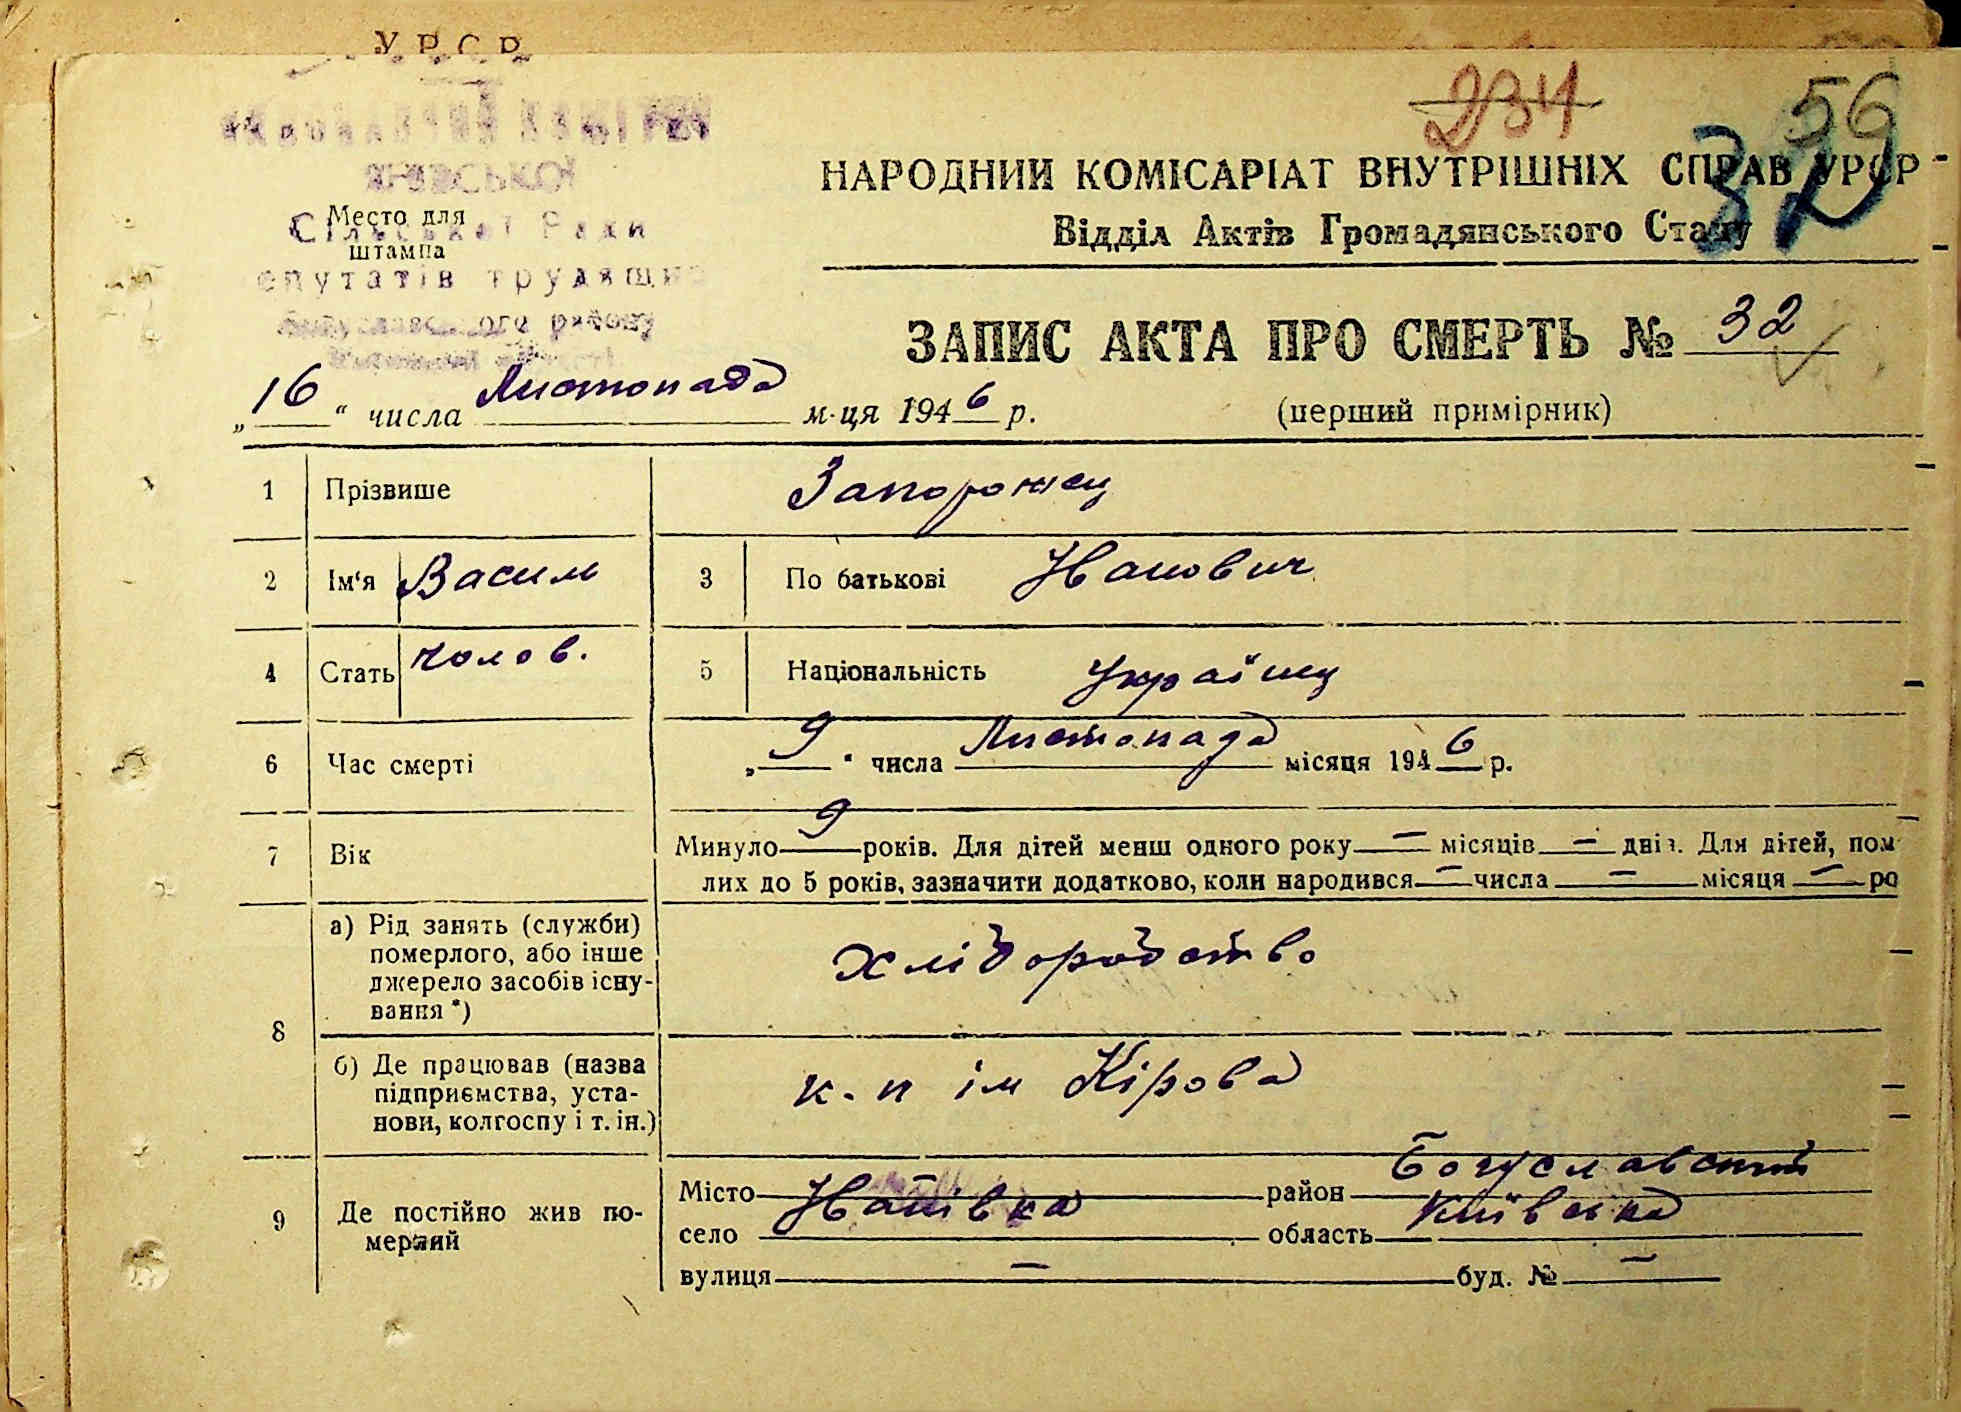 УРСР
ВИКОНАВЧИЙ КОМІТЕТ
Сільської Ради
Место для
штампа
депутатів трудящих
Богуславського району
234
56
32
НАРОДНИЙ КОМІСАРІАТ ВНУТРІШНІХ СПРАВ УРСР
Відділ Актів Громадянського Стану
ЗАПИС АКТА ПРО СМЕРТЬ № 32
„16“ числа Листопада м-ця 1946 р.
(перший примірник)
1 Прізвише Запорожец
2 Ім‘я Васил 3 По батькові Иванович
4 Стать чолов. 5 Національність Українц
6 Час смерті „9“ числа Листопада місяця 1946 р.
7 Вік Минуло 9 років. Для дітей менш одного року — місяців — днів. Для дітей, пом
лих до 5 років, зазначити додатково, коли народився — числа — місяця — ро
8 а) Рід занять (служби)
померлого, або інше
джерело засобів існу-
вання *)
хліборобство
б) Де працював (назва
підприємства, уста-
нови, колгоспу і т. ін.)
к-п ім Кірова
9 Де постійно жив по-
мерлий
Місто
село Іванівка
район Богуславский
область Київська
вулиця — буд. № —